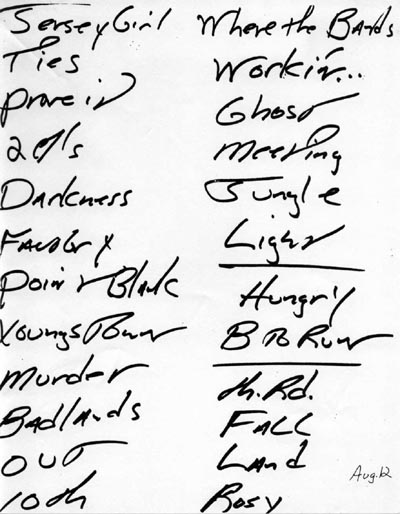 Jersey Girl
Ties
Prove it
2
Darkness
Factory
Point Blank
Youngstown
Murder
Badlands
Out
10th
Where the Bands
Workin'...
Ghost
Meeting
Jungle
Light
Hungry
B to Run
Th. Rd.
FALL
Land
Rosy
Aug.12